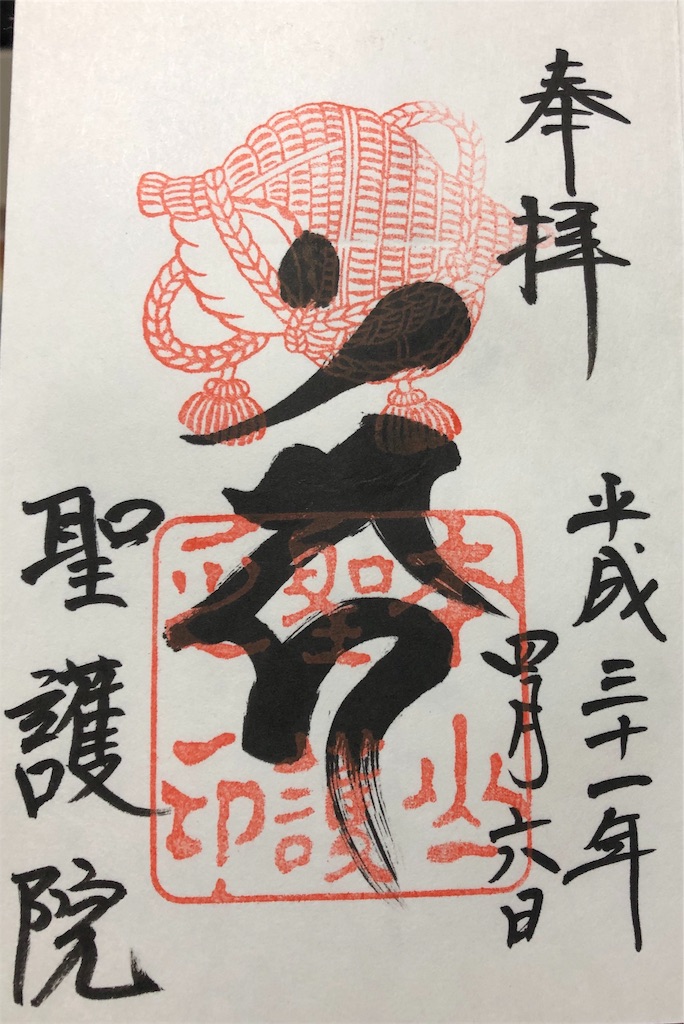 奉拝
平成三十一年
四月六日
本山
聖護
之印
聖護院